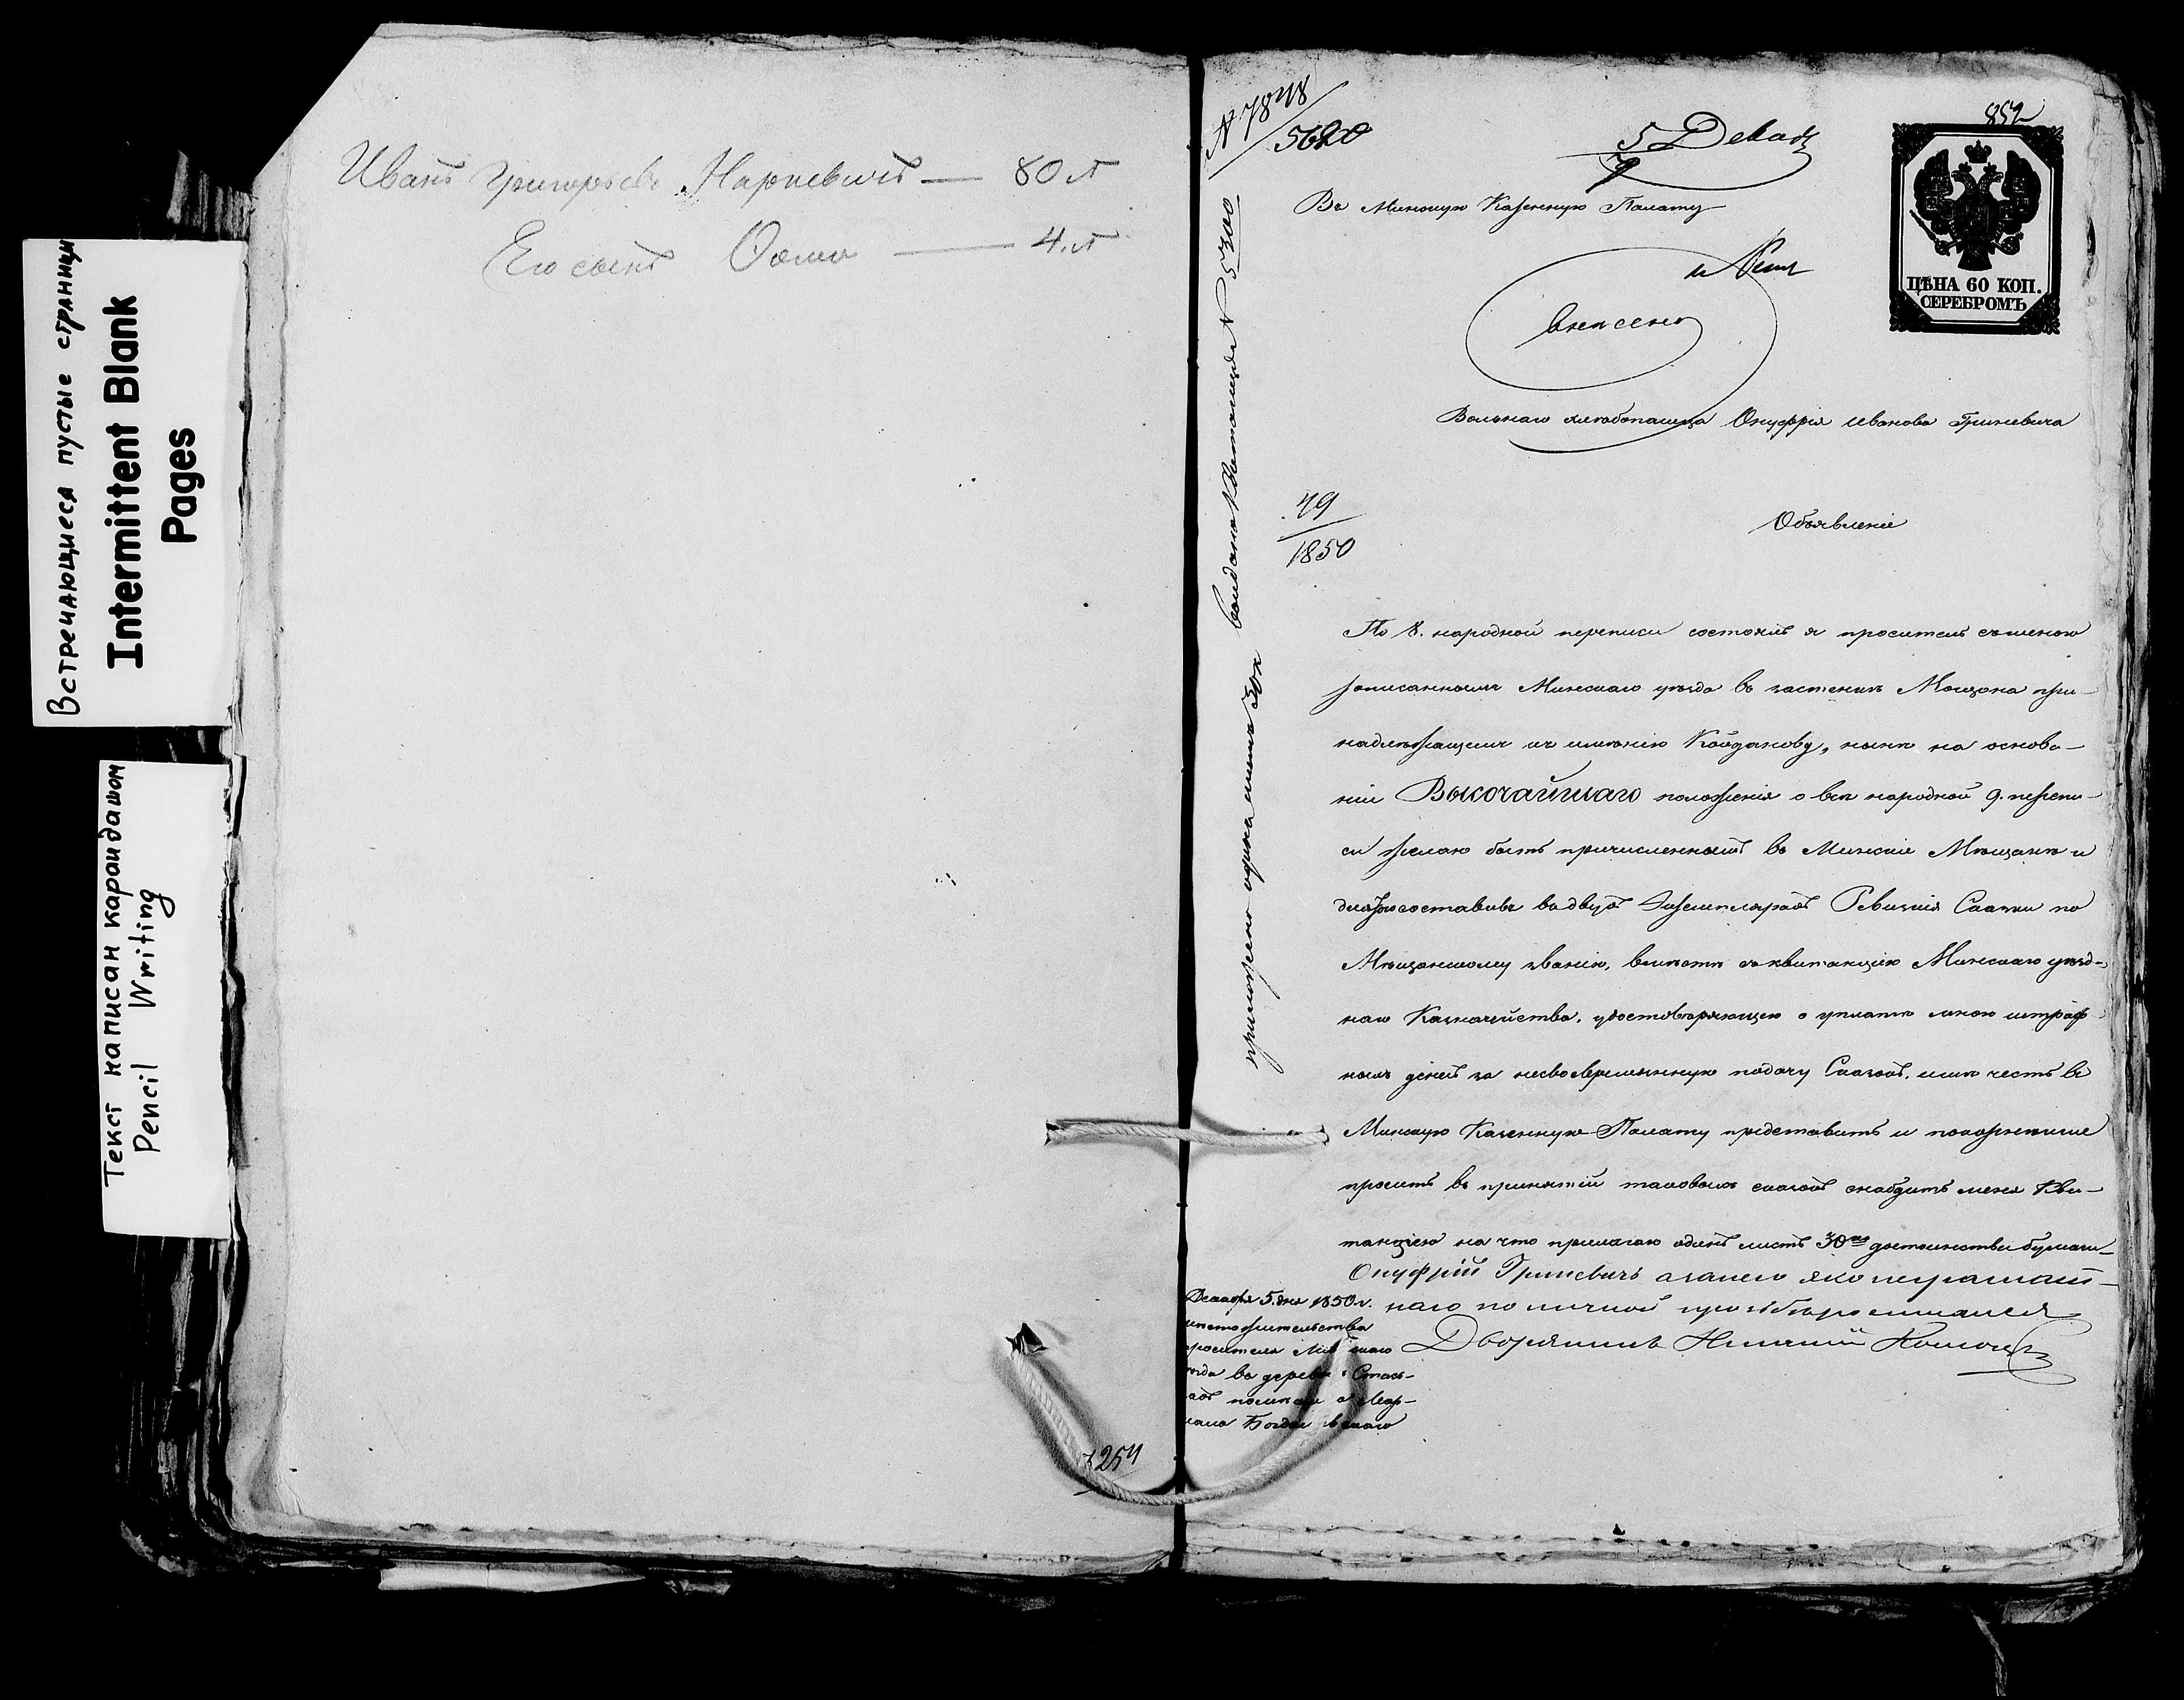 Встречающиеся пустые страницы
Intermittent Blank
Pages
Текст написан карандашом
Pencil Writing
Иванъ Григорьевъ Наркевичъ — 80 л
Его сынъ Фома — 4. л
254
№ 7848
5620
5 Декаб
7
852
ЦѢНА 60 КОП.
СЕРЕБРОМЪ
Въ Минскую Казенную Палату
внесено
Вольнаго хлѣбопашца Онуфрія Иванова Гриневича
49
1850
Объявленіе
По 8. народной переписи состоялъ я проситель съ женою
записаннымъ Минскаго уѣзда въ застенкѣ Мощона при-
надлѣжащемъ къ имѣнію Койданову, нынѣ на основа-
ніи Высочайшаго положенія о всѣ народной 9. перепи-
си желаю быть причисленнымъ въ Минскіе Мѣщане и
для того составивъ въ двухъ Экземплярахъ Ревизкія Сказки по
Мѣщанскому званію, вмѣстѣ съ квитанціею Минскаго уѣзд-
наго Казначейства, удостовѣряющею о уплатѣ мною штраф-
ныхъ денегъ за несвоевременную подачу Сказокъ, имѣю честь въ
Минскую Казенную Палату представить и покорнѣйше
просить въ принятіи таковыхъ сказокъ снабдить меня Кви-
танціею на что прилагаю одинъ листъ 30го достоинства бумаги
Онуфрій Гриневичъ а за него яко неграмот-
наго по личной прозьбѣ росписался
Дворянинъ
Декабря 5. дня 1850 г.
мѣсто жительства
просителя Минскаго
уѣзда въ деревнѣ Стась-
кахъ помѣщика
выдана Квитанція № 5700
приложено одинъ листъ 30 к